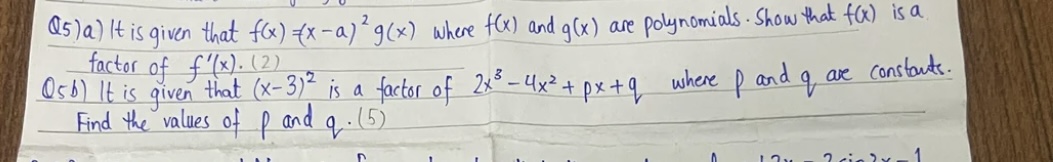 Q5)a) It is given that f(x)=(x-a)² g(x) where f(x) and g(x) are polynomials. Show that f(x) is a
factor of f'(x). (2)
Q5b) It is given that (x-3)² is a factor of 2x³-4x²+px+q where p and q are constants.
Find the values of p and q. (5)